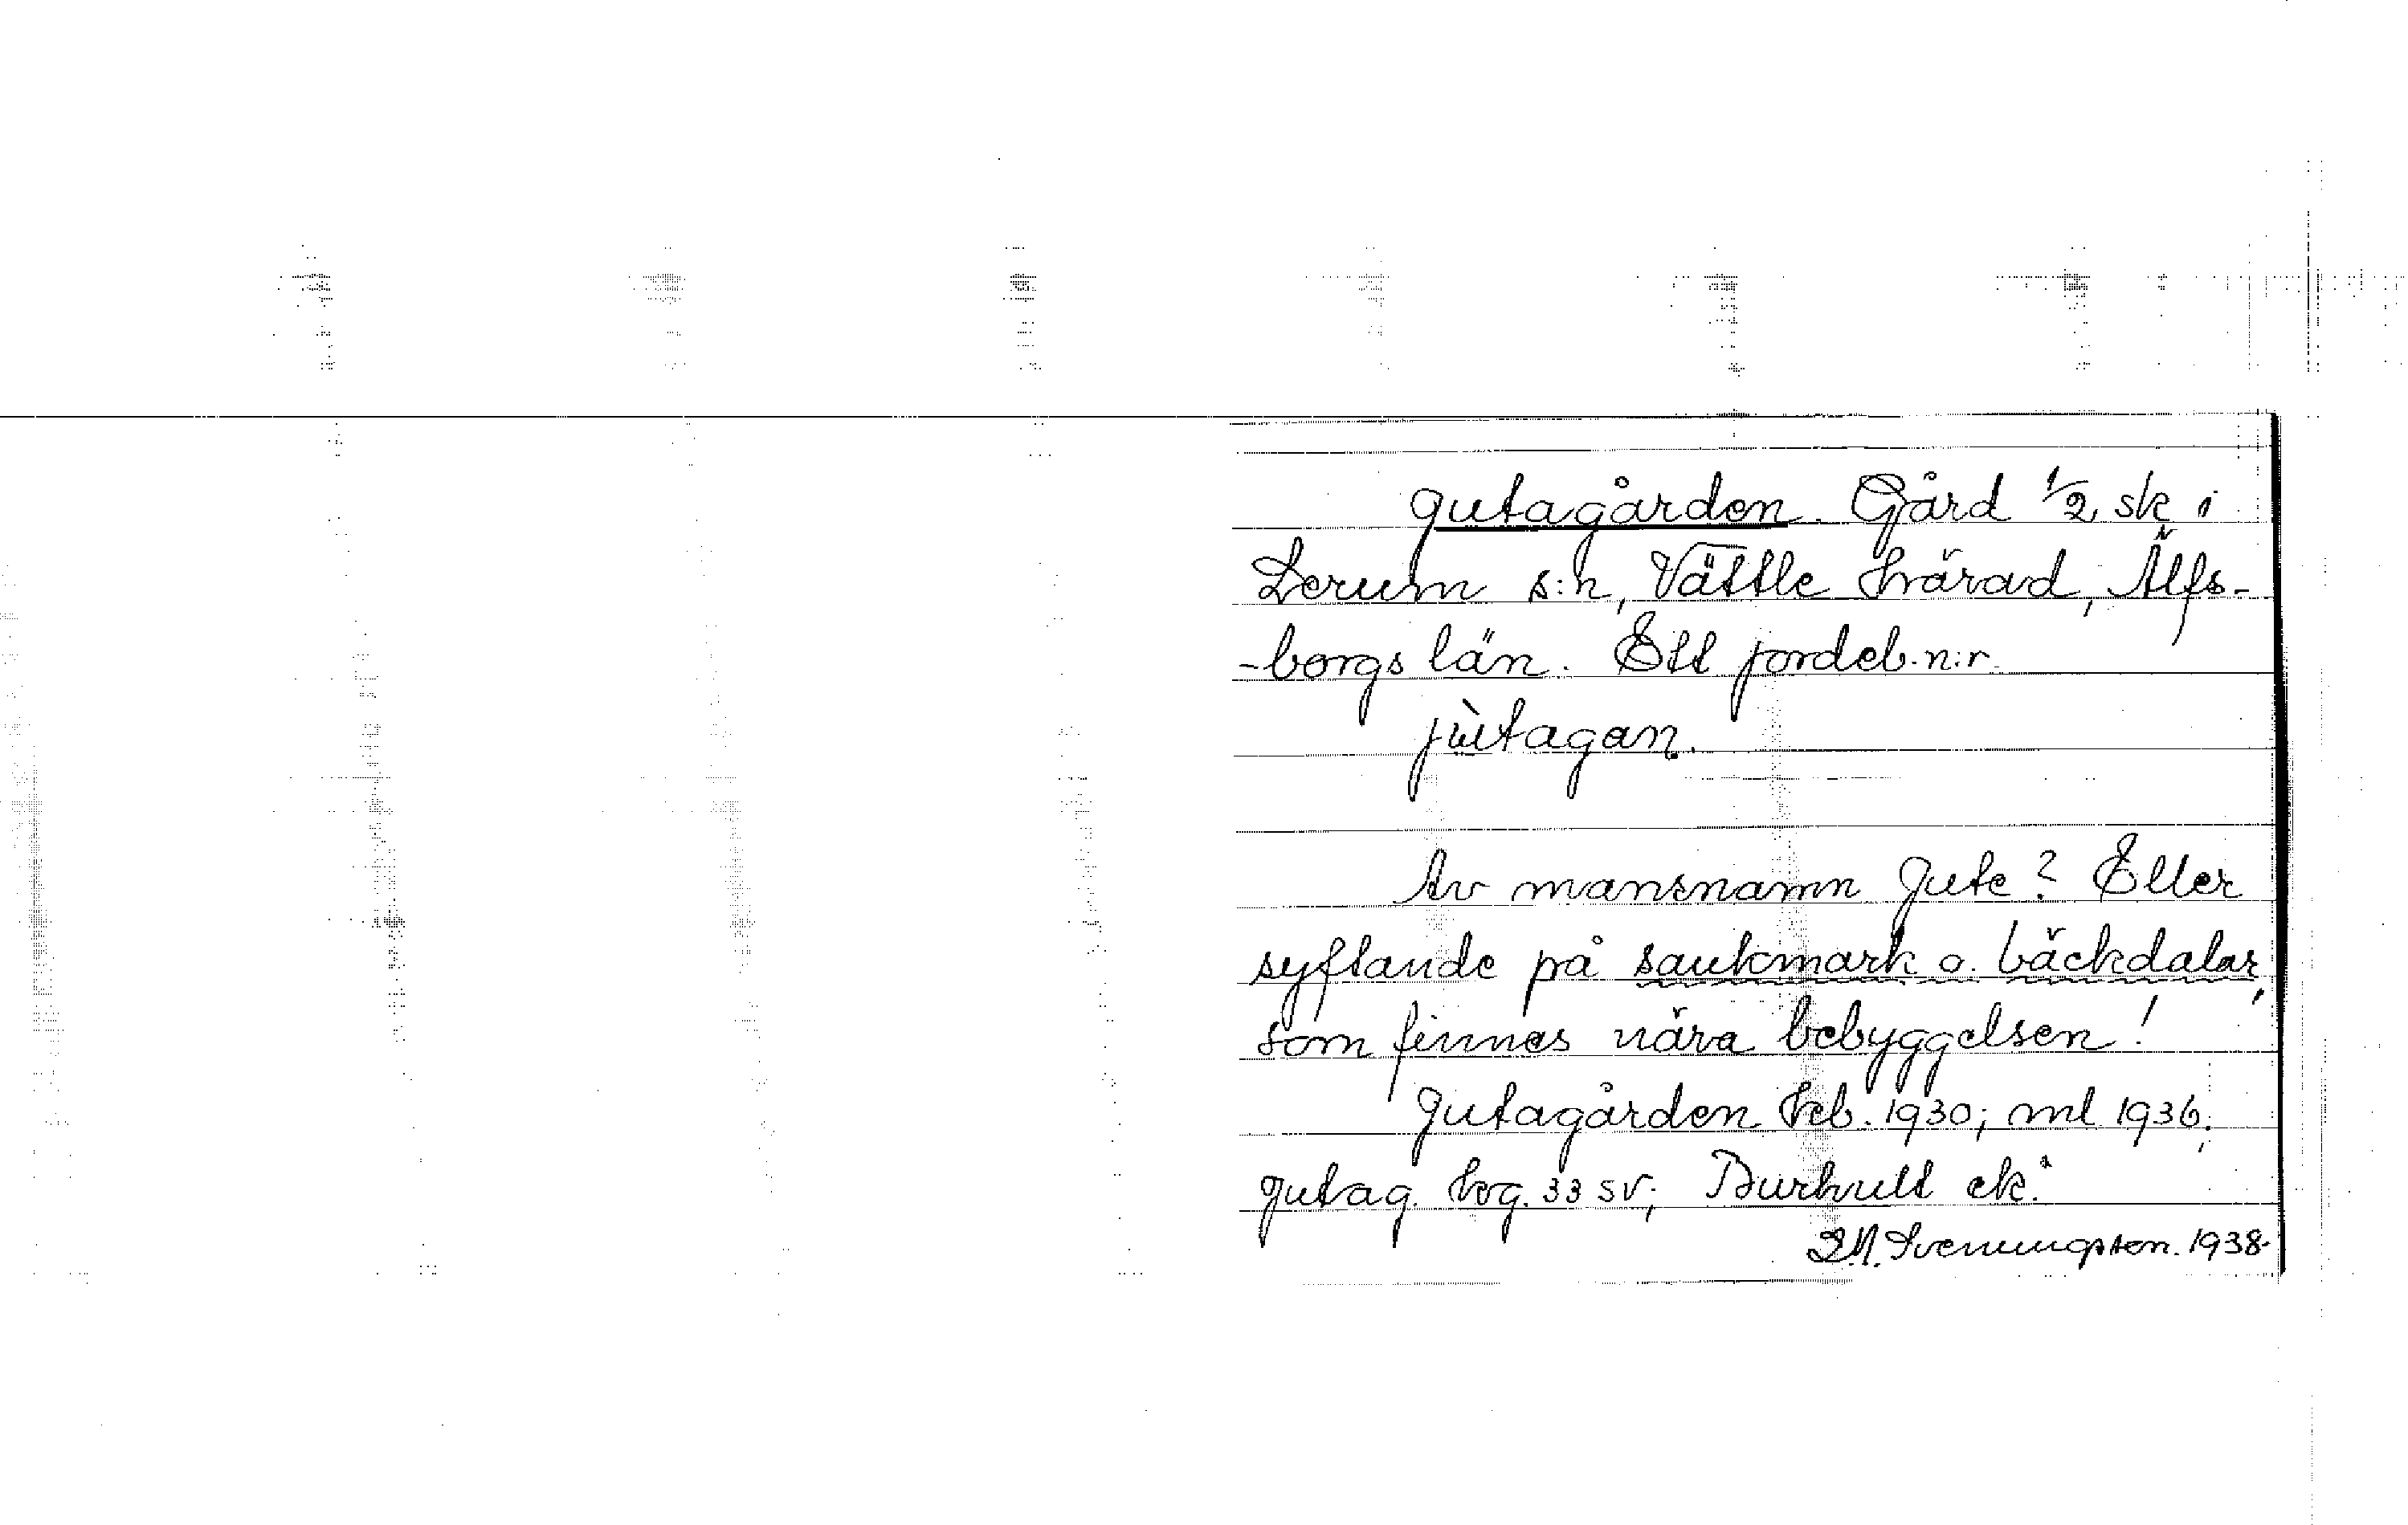 Jutagården. Gård 1/2 sk i
Lerum s:n, Vättle härad, Älfs-
-borgs län. Ett jordeb.n:r.
jùtagan.
Av mansnamn Jute? Eller
syftande på sankmark o. bäckdalar,
som finnas nära bebyggelsen!
Jutagården Jeb. 1930; ml 1936;
Jutag. hog. 33 SV; Burhult ek.
Sveningsson. 1938.